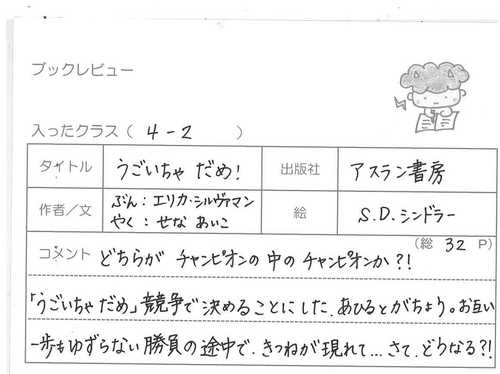 ブックレビュー
入ったクラス( 4-2 )
タイトル うごいちゃ だめ! 出版社 アスラン書房
作者/文 ぶん:エリカ・シルヴァマン やく:せな あいこ 絵 S.D.シンドラー
(総 32 P)
コメント どちらが チャンピオンの 中の チャンピオンか?!
「うごいちゃ だめ」競争で 決めることにした、あひるとがちょう。お互い
一歩もゆずらない 勝負の途中で、きつねが現れて…さて、どうなる?!